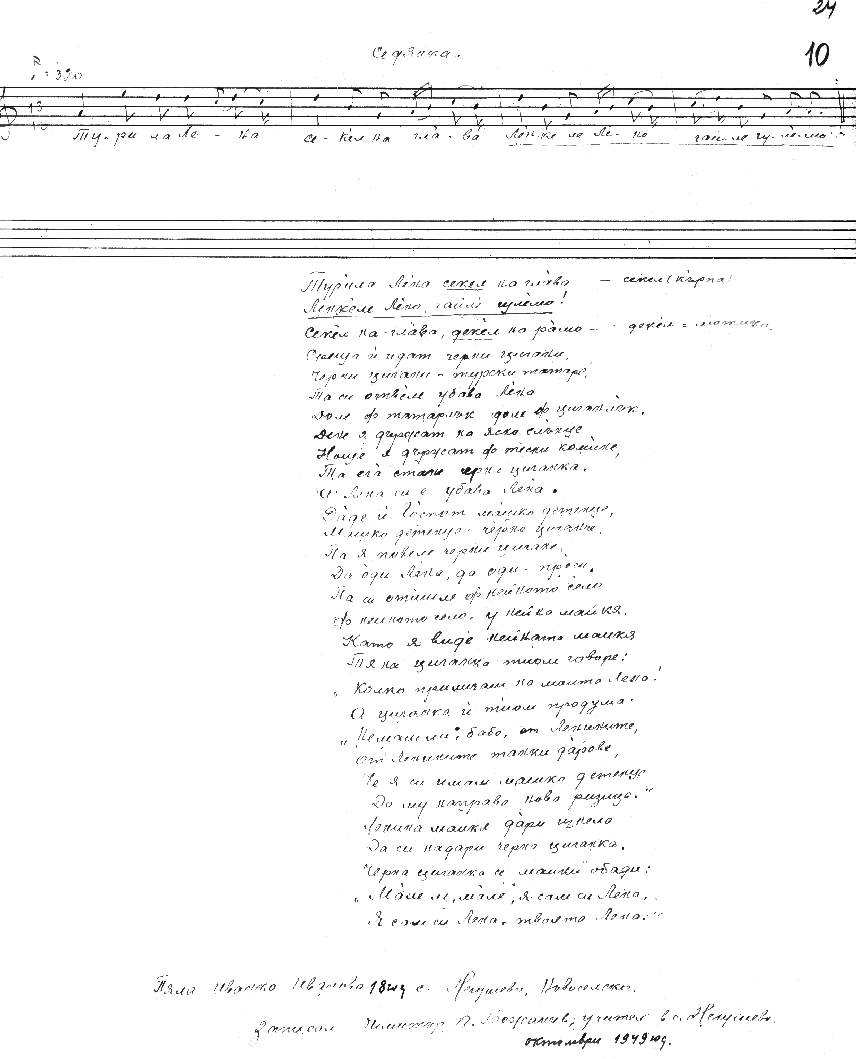 24
10
Седянка.
= 320
13
16
Ту-ри ла Ле - на се-кел на гла-ва Лен-ке ле Ле-но гай-ле гу-ле-мо
Турила Лена секел на глава — секел (кърпа)
Ленкеле Лено, гайле гулемо!
Секел на глава, декел на рамо — декел = мотика.
Среща ѝ идат черни цигани,
Черни цигани - турски татаре,
Та си отвели убава Лена
Доле ф татарлък доле ф циганлък.
Дене я държат на яско слънце
Ноще я държат ф тесни комине,
Та ега стане черна циганка.
И Лена си е убава Лена.
Даде ѝ Госпот машко детенце,
Машко детенце - черно циганче.
Па я повеле черни цигане,
Да оди Лена, да оди - проси.
Па си отишле ф нейното село
Ф нейното село, у нейна майкя.
Като я виде нейната майкя
Тя на циганка тиом говоре:
„Колко приличаш на моита Лена!
А циганка ѝ тиом продума:
„Немаш ли, бабо, от Ленините,
От Ленините танки дарове,
Че я си имам машко детенце
Да му направа нова ризица."
Ленина майкя дари изнела
Да си надари черна циганка.
Черна циганка се майки обади:
„Мале м, мале, я сам си Лена,
Я сам си Лена, твоята Лена."
Пяла Иванка Иванова 18 год с. Негушево, Новоселско.
Записал Димитър П. Божанов, учител в с. Негушево.
октомври 1949 год.